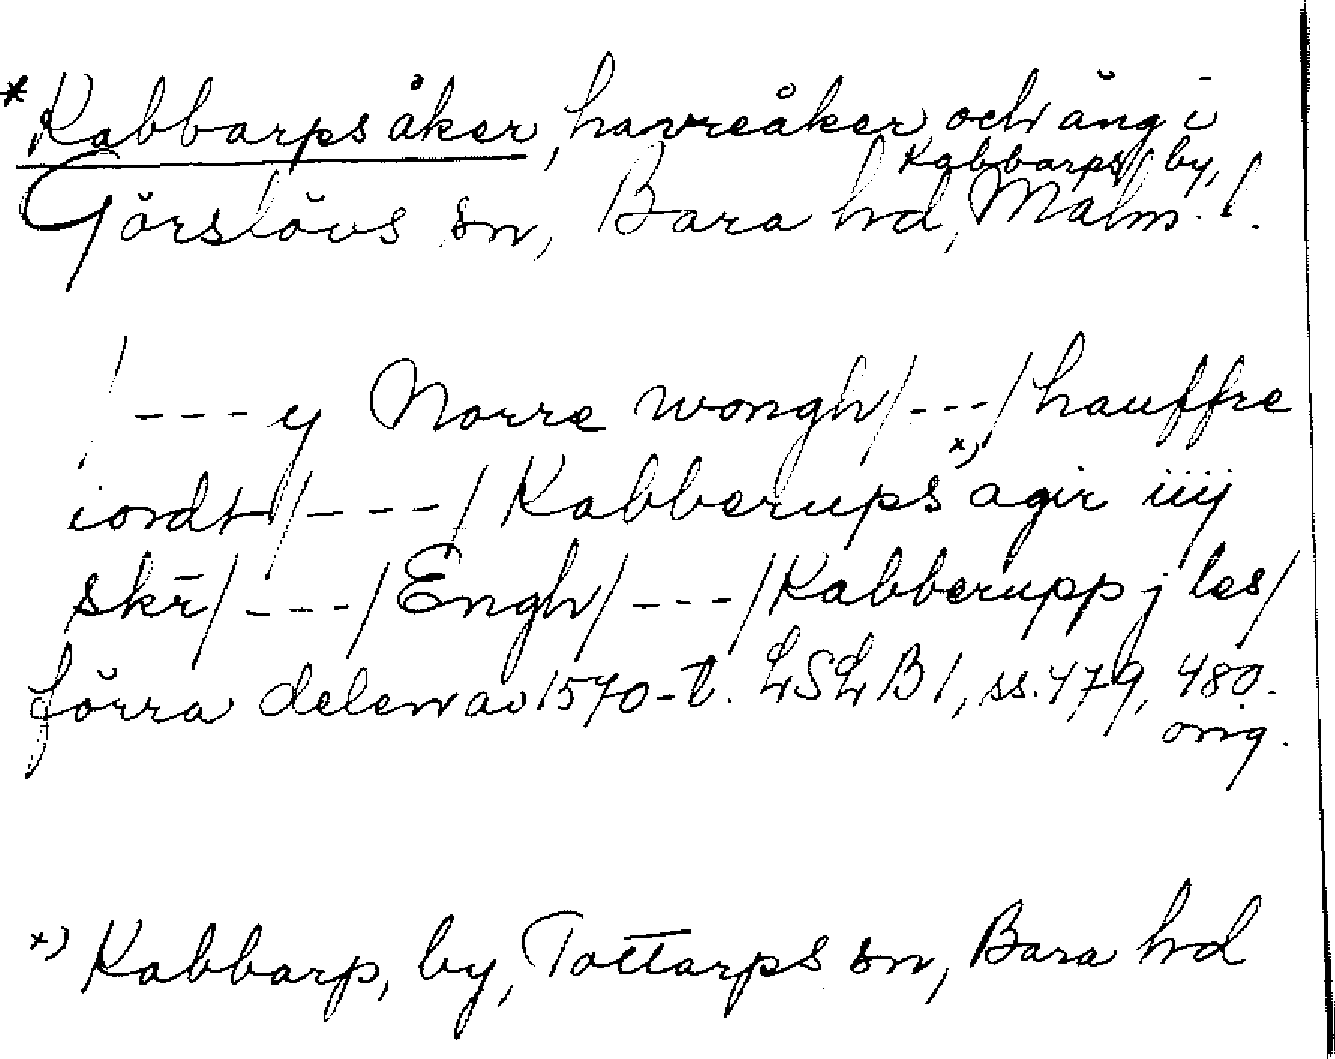 *Kabbarpsåker, havreåker och äng i
Kabbarps by,
Görslövs sn, Bara hd, Malm. l.
/---y Norre wongh/---/hauffre
iordt/---/Kabberups x) agir iiij
skr̄/---/Engh/---/Kabberupp j les/
förra delen av 1570-t. LSLB 1, ss. 479, 480.
orig.
x) Kabbarp, by, Tottarps sn, Bara hd